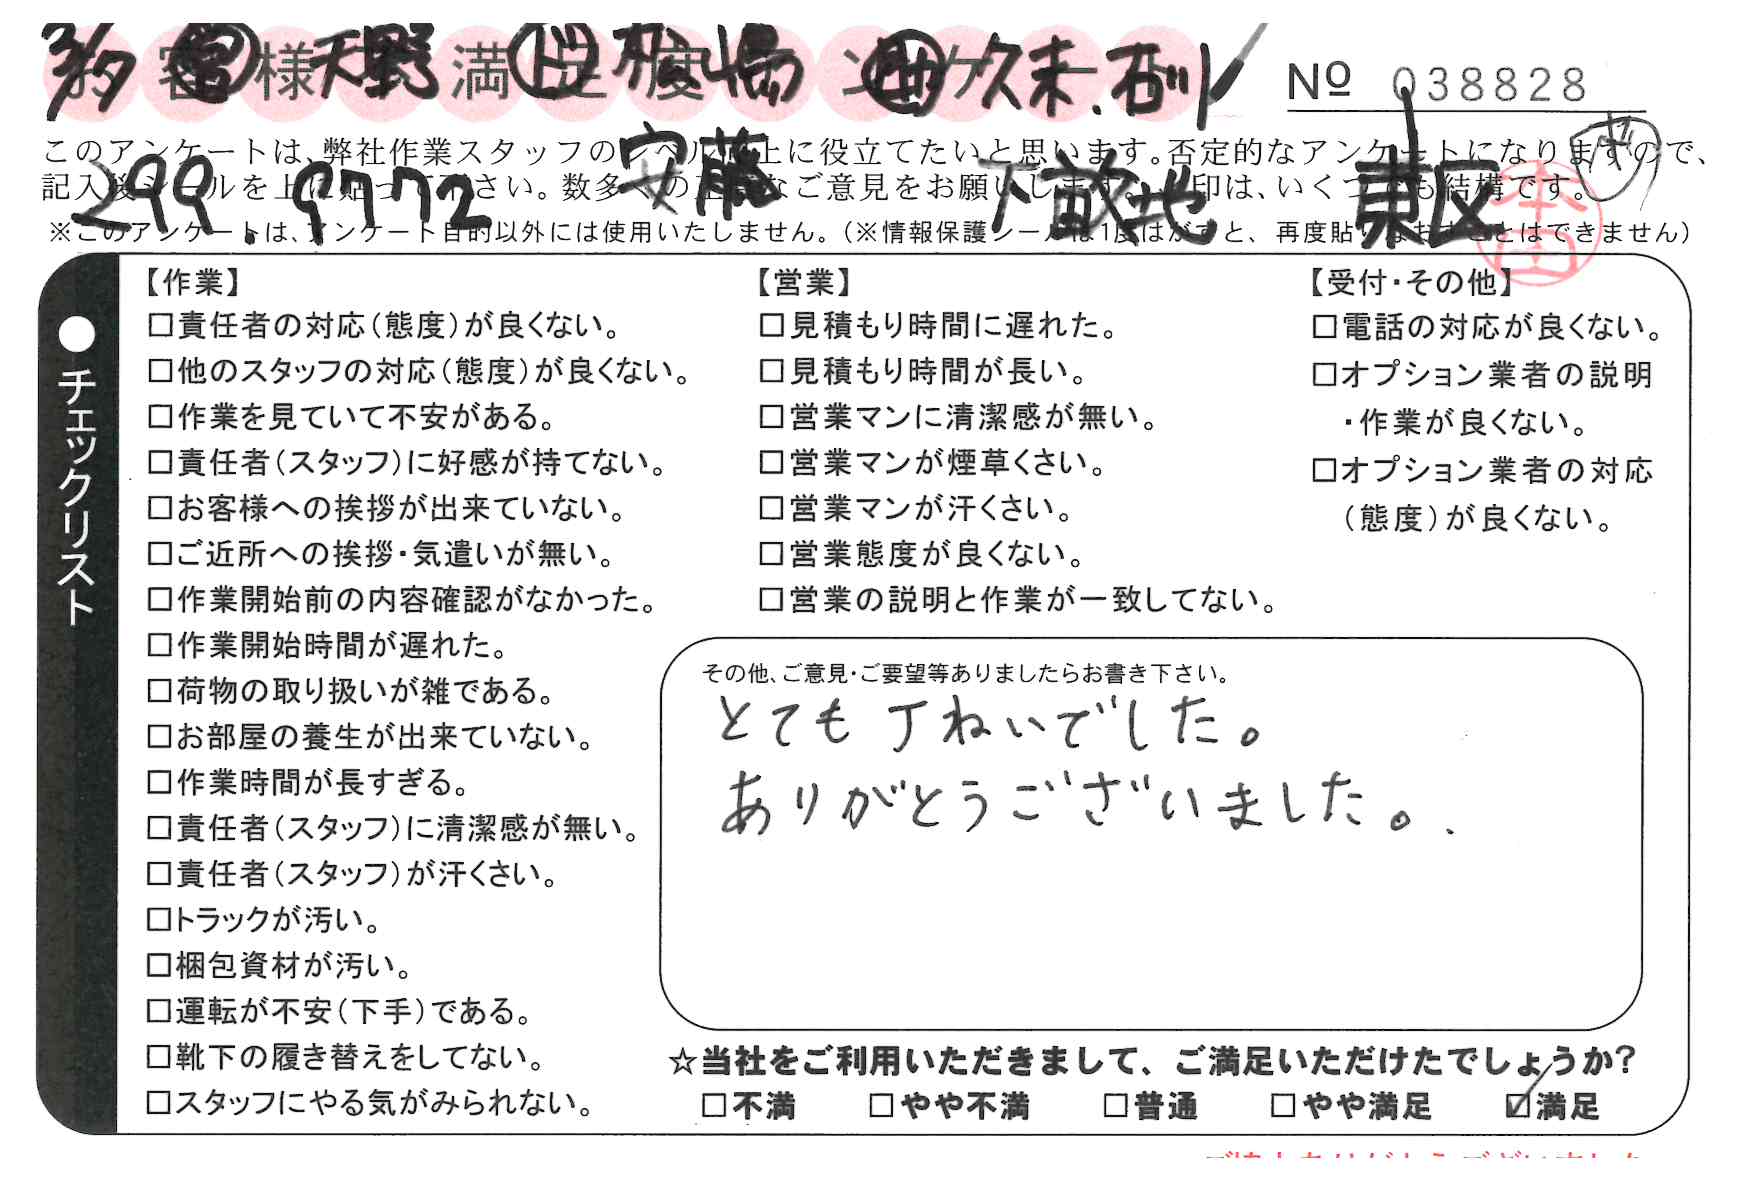 3/7 ㊂ 天野 ㋣ 松嶋 久末.石川
お客様満足度アンケート
№ 038828
このアンケートは、弊社作業スタッフのレベル向上に役立てたいと思います。否定的なアンケートになりますので、
記入後シールを上に貼って下さい。数多くの正直なご意見をお願いします。レ印は、いくつでも結構です。
299.9772 安藤 下敷地 東区
本田
※このアンケートは、アンケート目的以外には使用いたしません。(※情報保護シールは1度はがすと、再度貼りなおすことはできません)
●チェックリスト
【作業】
□責任者の対応(態度)が良くない。
□他のスタッフの対応(態度)が良くない。
□作業を見ていて不安がある。
□責任者(スタッフ)に好感が持てない。
□お客様への挨拶が出来ていない。
□ご近所への挨拶・気遣いが無い。
□作業開始前の内容確認がなかった。
□作業開始時間が遅れた。
□荷物の取り扱いが雑である。
□お部屋の養生が出来ていない。
□作業時間が長すぎる。
□責任者(スタッフ)に清潔感が無い。
□責任者(スタッフ)が汗くさい。
□トラックが汚い。
□梱包資材が汚い。
□運転が不安(下手)である。
□靴下の履き替えをしてない。
□スタッフにやる気がみられない。
【営業】
□見積もり時間に遅れた。
□見積もり時間が長い。
□営業マンに清潔感が無い。
□営業マンが煙草くさい。
□営業マンが汗くさい。
□営業態度が良くない。
□営業の説明と作業が一致してない。
【受付・その他】
□電話の対応が良くない。
□オプション業者の説明
・作業が良くない。
□オプション業者の対応
(態度)が良くない。
その他、ご意見・ご要望等ありましたらお書き下さい。
とても丁ねいでした。
ありがとうございました。
☆当社をご利用いただきまして、ご満足いただけたでしょうか?
□不満 □やや不満 □普通 □やや満足 ☑満足
ご協力ありがとうございました